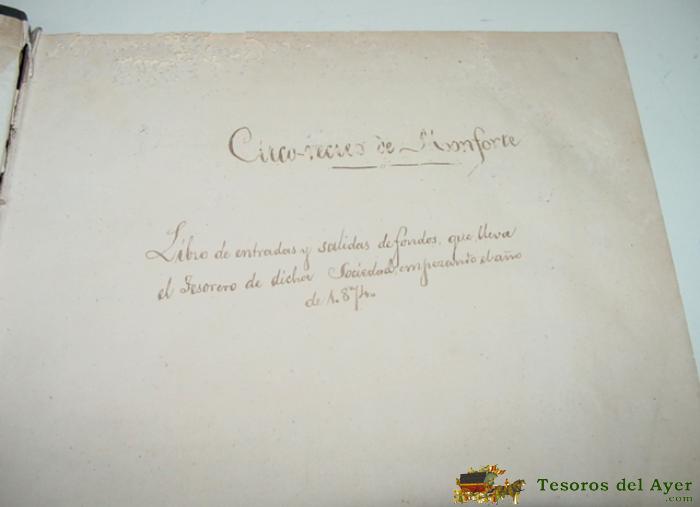 Circo-recreo de Monforte
Libro de entradas y salidas de fondos, que lleva
el Tesorero de dicha Sociedad, empezando el año
de 1.874.
Tesoros del Ayer
.com